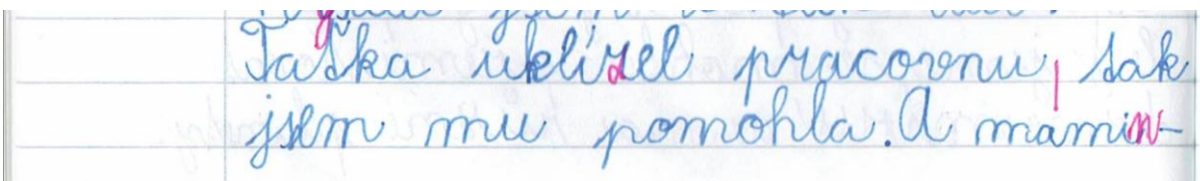 Taťka uklízel pracovnu, tak
jsem mu pomohla. A mamin-